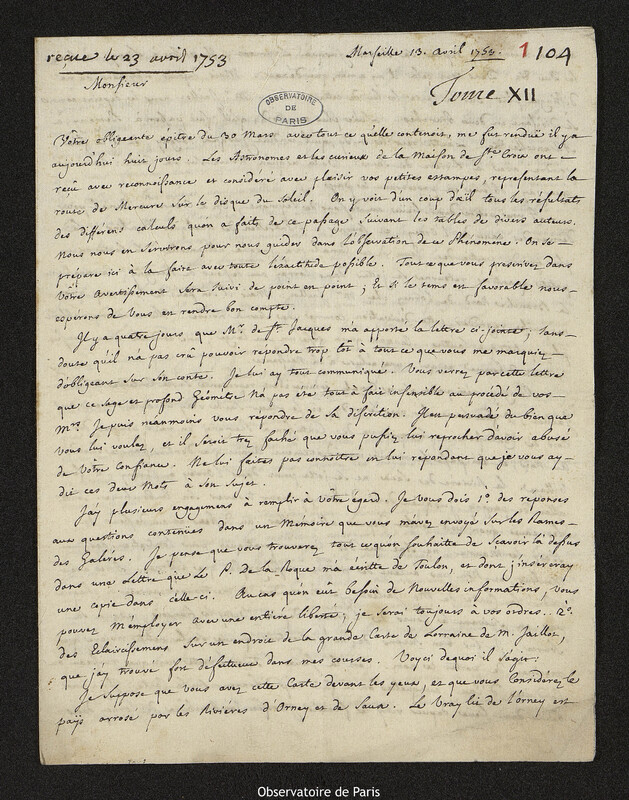 reçue le 23 avril 1753
Marseille 13. avril 1753.
1 104
Monsieur
Tome XII
OBSERVATOIRE
DE
PARIS
Vôtre obligeante epitre du 30 Mars avec tout ce qu'elle contenoit, me fut rendue il y a
aujourd'hui huit jours. Les Astronomes et les curieux de la Maison de Ste Croix ont
reçû avec reconnoissance et considéré avec plaisir vos petites estampes, representant la
route de Mercure sur le disque du Soleil. On y voit d'un coup d'œil tous les résultats
des différens calculs quon a faits de ce passage suivant les tables de divers auteurs.
Nous nous en servirons pour nous guider dans l'observation de ce Phénomène. On se
prépare ici à la faire avec toute l'exactitude possible. Tout ce que vous prescrivez dans
Vôtre Avertissement sera suivi de point en point; Et si le tems est favorable nous
esperons de Vous en rendre bon compte.
Il y a quatre jours que Mr. de St. Jacques m'a apporté la lettre ci-jointe; sans
doute qu'il n'a pas crû pouvoir répondre trop tôt à tout ce que vous me marquiez
d'obligeant sur son conte. Je lui ay tout communiqué. Vous verrez par cette lettre
que ce sage et profond Géomètre n'a pas été tout à fait insensible au procédé de vos
Mrs. Je puis neanmoins vous répondre de sa discrétion. Il est persuadé du bien que
vous lui voulez, et il seroit trez faché que vous pussiez lui reprocher d'avoir abusé
de Vôtre confiance. Ne lui faites pas connoître en lui repondant que je vous ay
dit ces deux Mots à Son Sujet.
J'ay plusieurs engagemens à remplir à vôtre égard. Je vous dois 1o. des reponses
aux questions contenues dans un Mémoire que vous m'avez envoyé sur les Rames
des Galéres. Je pense que vous trouverez tout ce quon souhaitte de scavoir là dessus
dans une Lettre que le P. De la Roque m'a écritte de Toulon, et dont j'insereray
une copie dans celle-ci. Au cas quon eût besoin de Nouvelles informations, vous
pouvez M'employer avec une entière liberté; je serai toujours à vos ordres. 2o.
des Eclaircissemens sur un endroit de la grande Carte de Lorraine de M. Jaillot,
que j'ay trouvé fort défectueux dans mes courses. Voyci dequoi il s'agit:
Je suppose que vous avez cette Carte devant les yeux, et que vous Considérez le
païs arrosé par les Rivières d'Orney et de Saux. Le Vray lit de l'orney est
Observatoire de Paris